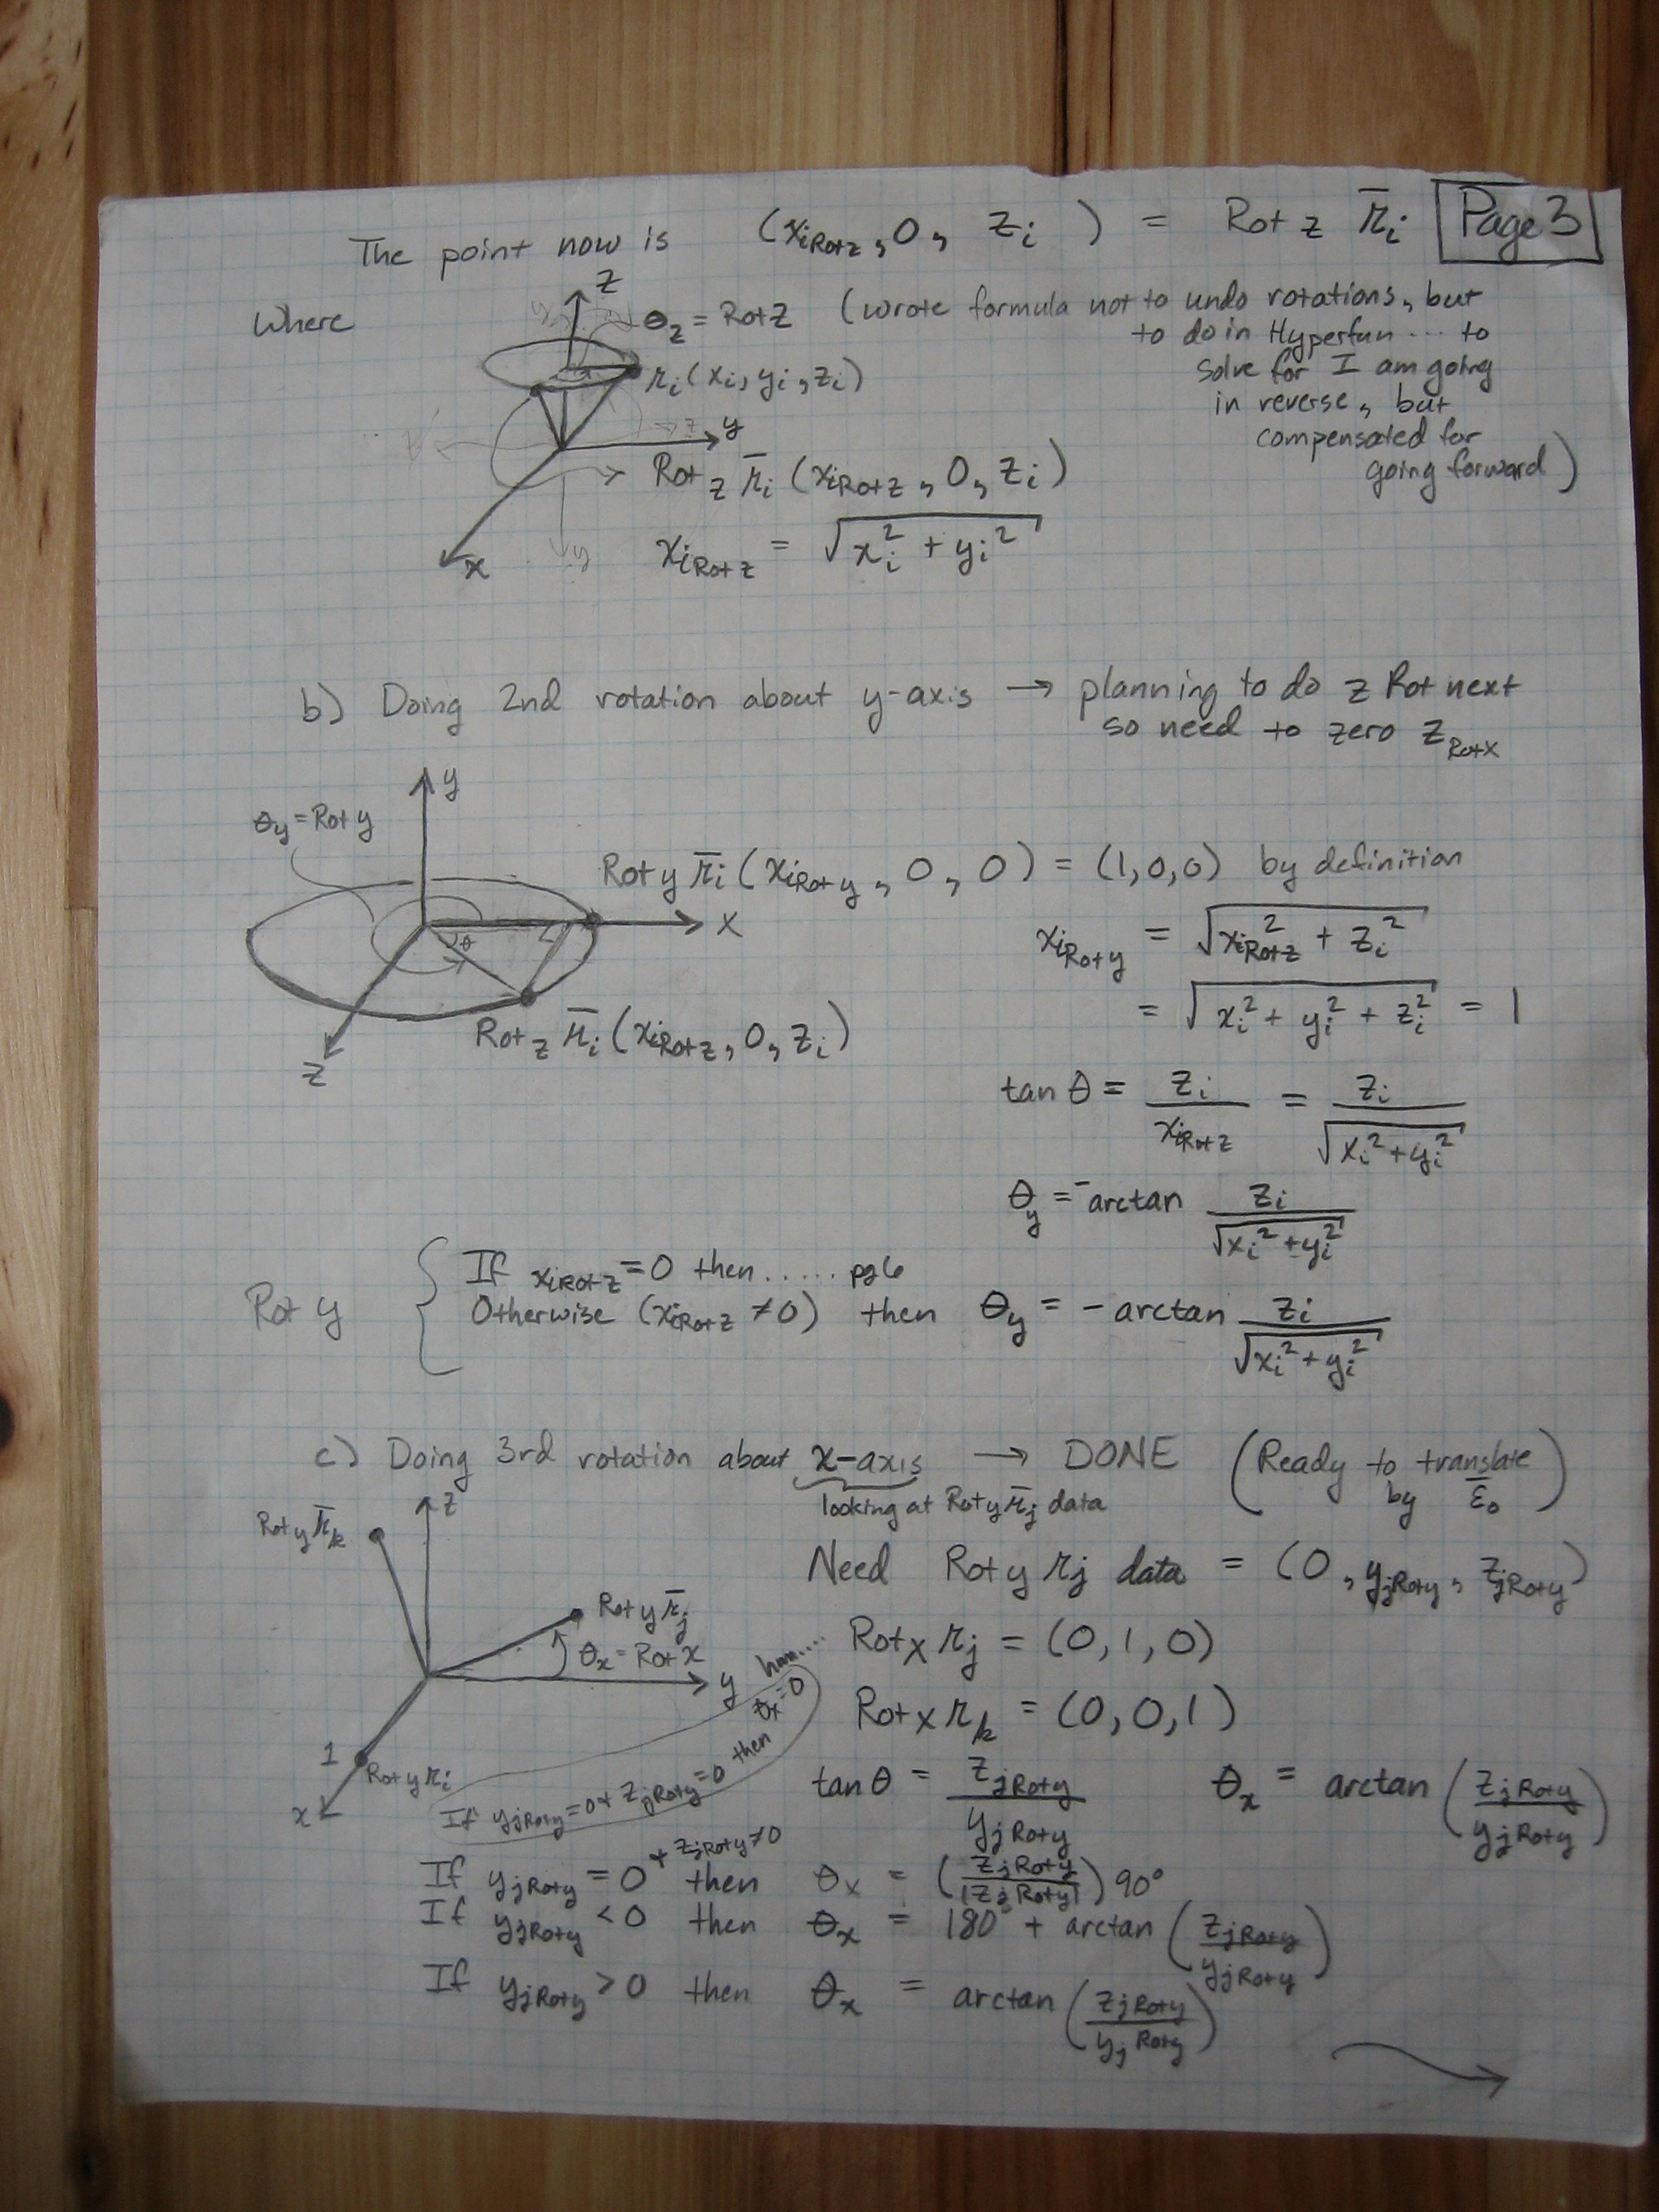 The point now is (xiRotz, 0, zi) = Rot z r̄i Page 3
Where
z
θz = Rotz (wrote formula not to undo rotations, but
to do in Hyperfun .... to
solve for I am going
in reverse, but
compensated for
going forward)
ri(xi, yi, zi)
y
Rot z r̄i (xiRotz, 0, zi)
x
xiRotz = √(xi² + yi²)
b) Doing 2nd rotation about y-axis → planning to do z Rot next
so need to zero zRotx
y
θy = Rot y
Rot y r̄i (xiRoty, 0, 0) = (1,0,0) by definition
x
θ
xiRoty = √(xiRotz² + zi²)
= √(xi² + yi² + zi²) = 1
Rot z r̄i (xiRotz, 0, zi)
z
tan θ = zi / xiRotz = zi / √(xi² + yi²)
θy = -arctan zi / √(xi² + yi²)
Rot y
If xiRotz = 0 then ...... pg 6
Otherwise (xiRotz ≠ 0) then θy = - arctan zi / √(xi² + yi²)
c) Doing 3rd rotation about x-axis → DONE (Ready to translate
by ε̄o)
looking at Roty r̄j data
z
Rot y r̄k
Need Rot y rj data = (0, yjRoty, zjRoty)
Rot y r̄j
θx = Rot x
y
Rot x rj = (0, 1, 0)
Rot x rk = (0, 0, 1)
1
Rot y ri
x
hmm....
If yjRoty = 0 + zjRoty = 0 then
θx = 0
tan θ = zjRoty / yjRoty θx = arctan (zjRoty / yjRoty)
If yjRoty = 0 + zjRoty ≠ 0 then θx = (zjRoty / |zjRoty|) 90°
If yjRoty < 0 then θx = 180° + arctan (zjRoty / yjRoty)
If yjRoty > 0 then θx = arctan (zjRoty / yjRoty)